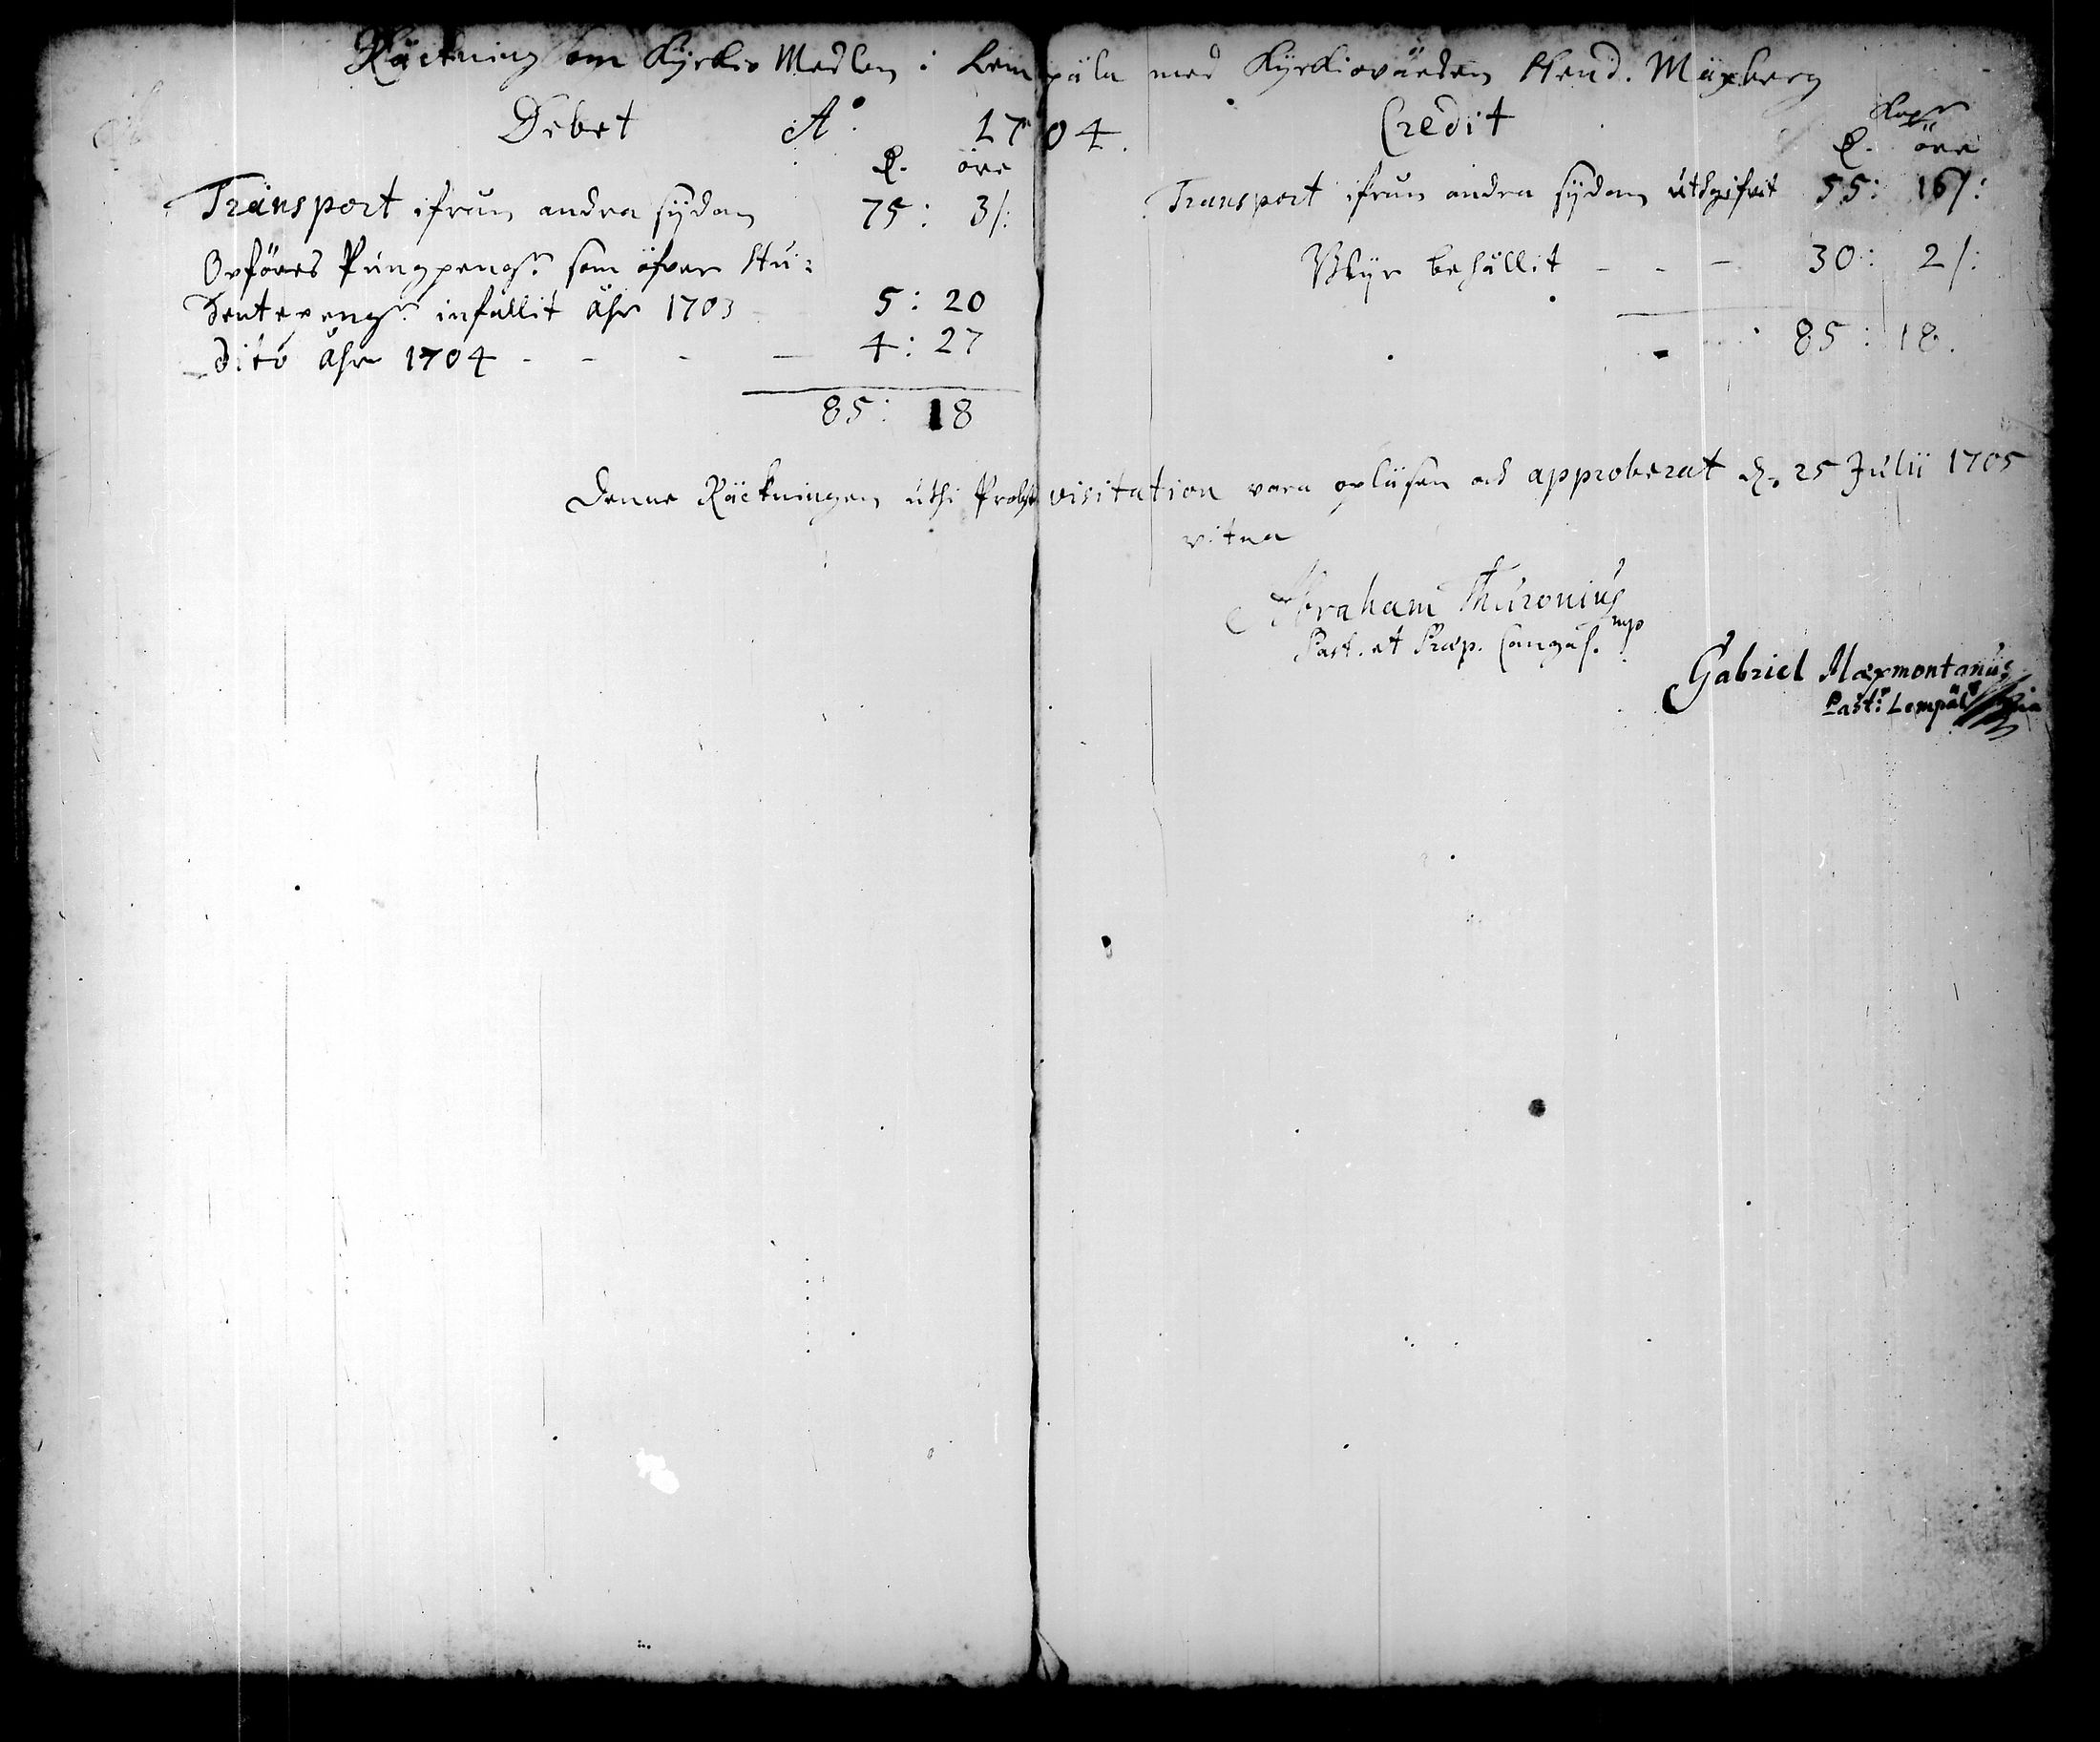 Räckning om Kyrkio Medlen i Lempäla med Kyrkiovärden Hend. Mäxberg
Debet A:o 1704.
D. öre
Transport ifrån andra sydan 75: 3/:
Opföres Pungpeng:r som öfver Stu:
dentepeng:r infallit åhr 1703 5: 20
Dito åhr 1704 - - - - 4: 27
85: 18
Credit
Kop:r
D. öre
Transport ifrån andra sydan uthgifvit 55: 16/:
Blijr behållit - - - 30: 2/:
85: 18.
Denne Räckningen uthi Probst visitation vara opläsen och approberat d. 25 Julii 1705
vitna
Abraham Thuronius mp
Past. et Præp. Cangas.
Gabriel Mæxmontanus
Past: Lempäl